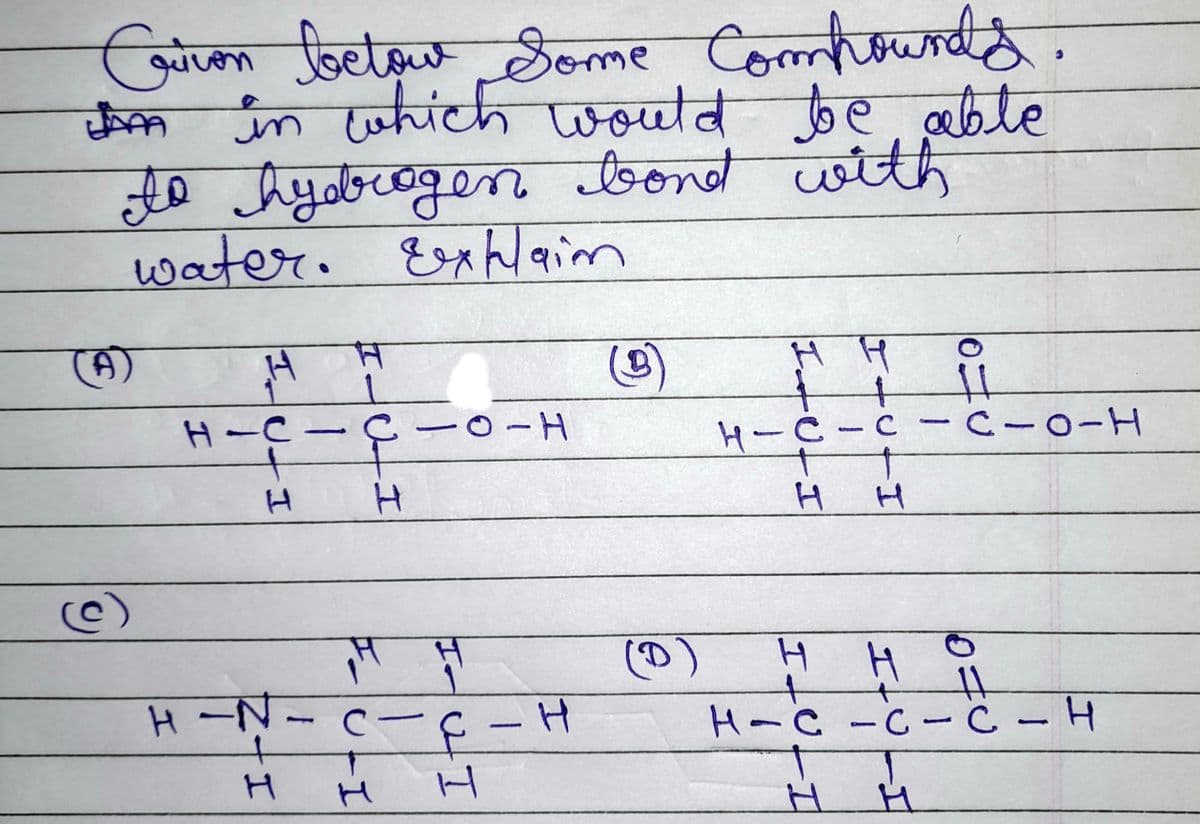 Given below Some Compounds.
in which would be able
to hydrogen bond with
water. Explain
(A) H H
H-C-C-O-H
H H
(B) H H O
H-C-C-C-O-H
H H
(C)
H H
H-N-C-C-H
H H H
(D) H H O
H-C-C-C-H
H H